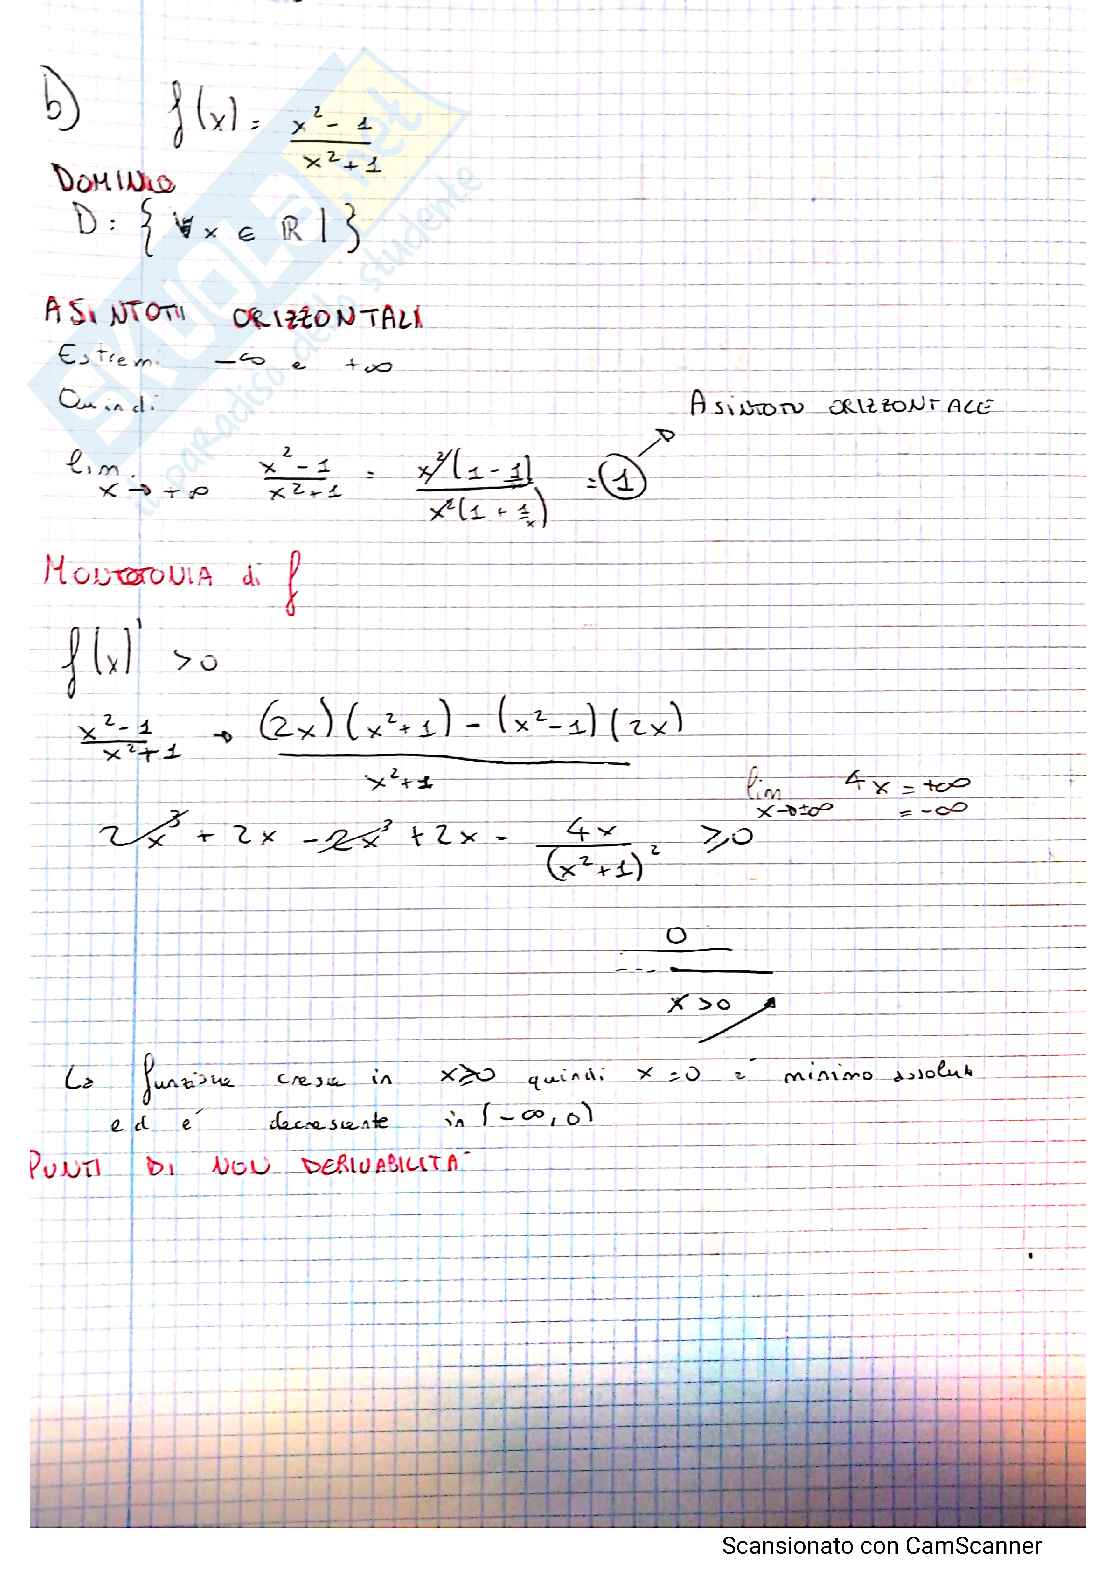 b) f(x) = x² - 1 / x² + 1
DOMINIO
D: { ∀ x ∈ ℝ | }
ASINTOTI ORIZZONTALI
Estremi -∞ e +∞
Quindi
ASINTOTO ORIZZONTALE
lim x→+∞ x² - 1 / x² + 1 = x²(1 - 1) / x²(1 + 1/x) = 1
MONOTONIA di f
f(x)' > 0
x² - 1 / x² + 1 → (2x)(x² + 1) - (x² - 1)(2x) / x² + 1
lim x→±∞ 4x = +∞
= -∞
2x³ + 2x - 2x³ + 2x - 4x / (x² + 1)² ≥ 0
0
x > 0
La funzione cresce in x ≥ 0 quindi x = 0 è minimo assoluto
ed é decrescente in (-∞, 0)
PUNTI DI NON DERIVABILITA'
SKUOLA.net
il paradiso dello studente
Scansionato con CamScanner